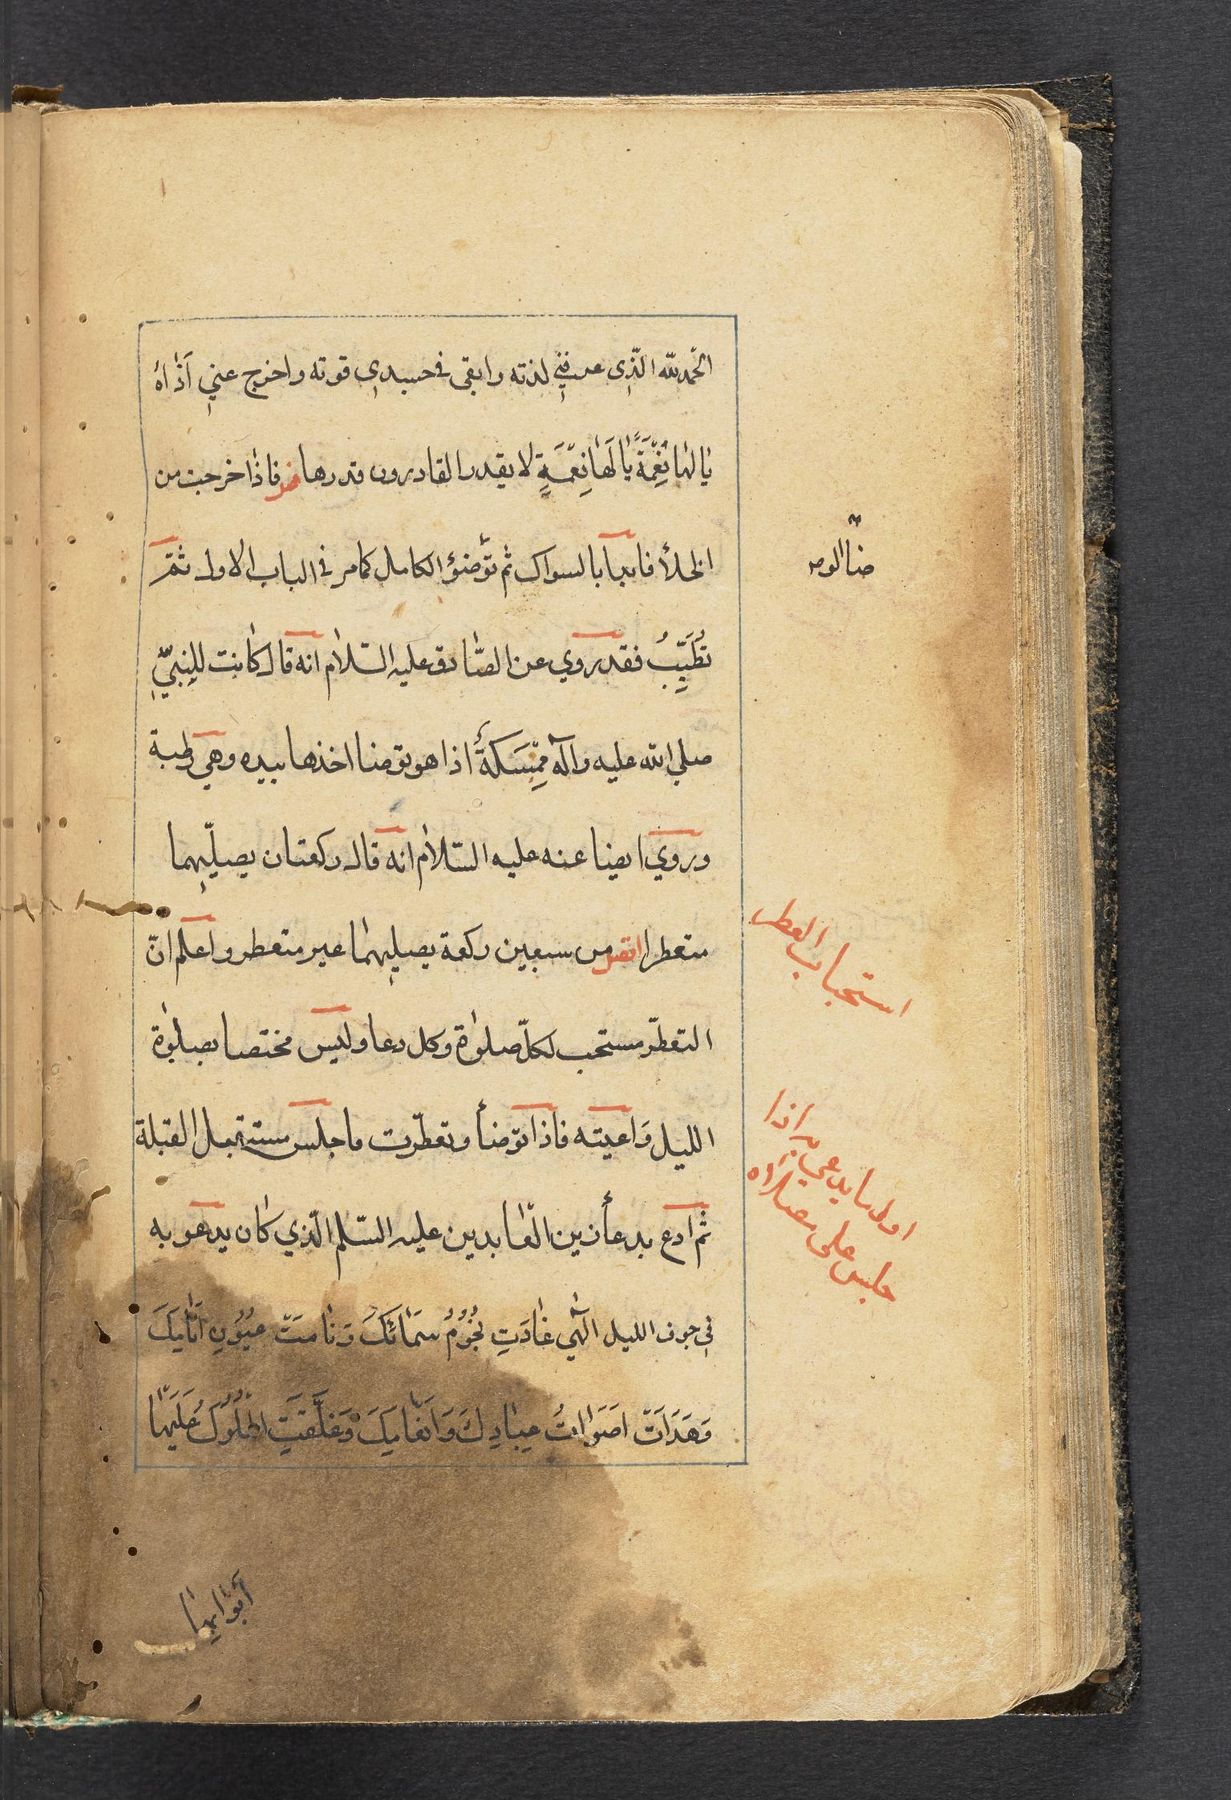 الحمد لله الّذى عرفنى لذته وابقى فى جسدى قوته واخرج عنى اذاه
يا لها نِعْمَةً يا لَها نِعْمَةٍ لا يقدر القادرون قدرها فاذا خرجت من
الخلأ فابدأ بالسواك ثم توضؤ الكامل كما مر فى الباب الاول ثمّ
تُطَيِّبُ فقد روي عن الصّادق عليه السّلام انه قال كانت للنبيّ
صلى الله عليه وآله مُمَسَكَةٌ اذا هو توضا اخذها بيده وهي رطبة
وروي ايضا عنه عليه السّلام انه قال ركعتان يصليّهما
متعطرا افضل من سبعين ركعة يصليهما غير متعطر واعلم انّ
التعطّر مستحب لكلّ صلوٰة وكل دعا وليس مختصا بصلوٰة
الليل وادعيته فاذا توضأ وتعطّرت فاجلس مستقبل القبلة
ثم ادع بدعأ زين العٰابدين عليه السّلم الّذي كان يدعو به
فى جوف الليل الٰهي غٰارَتِ نُجُوُمُ سَمٰائكَ وَنٰامَتَ عيُوُن اَنٰامِكَ
وَهَدَاَتْ اصَوٰاتُ عِبٰادِكَ وَاَنعٰامِكَ وَغَلَّقَتِ المُلُوُكُ عَلَيهٰا
استحباب العطر
اول ما يدعي به اذا
جلس على مصلاه
أبوابها